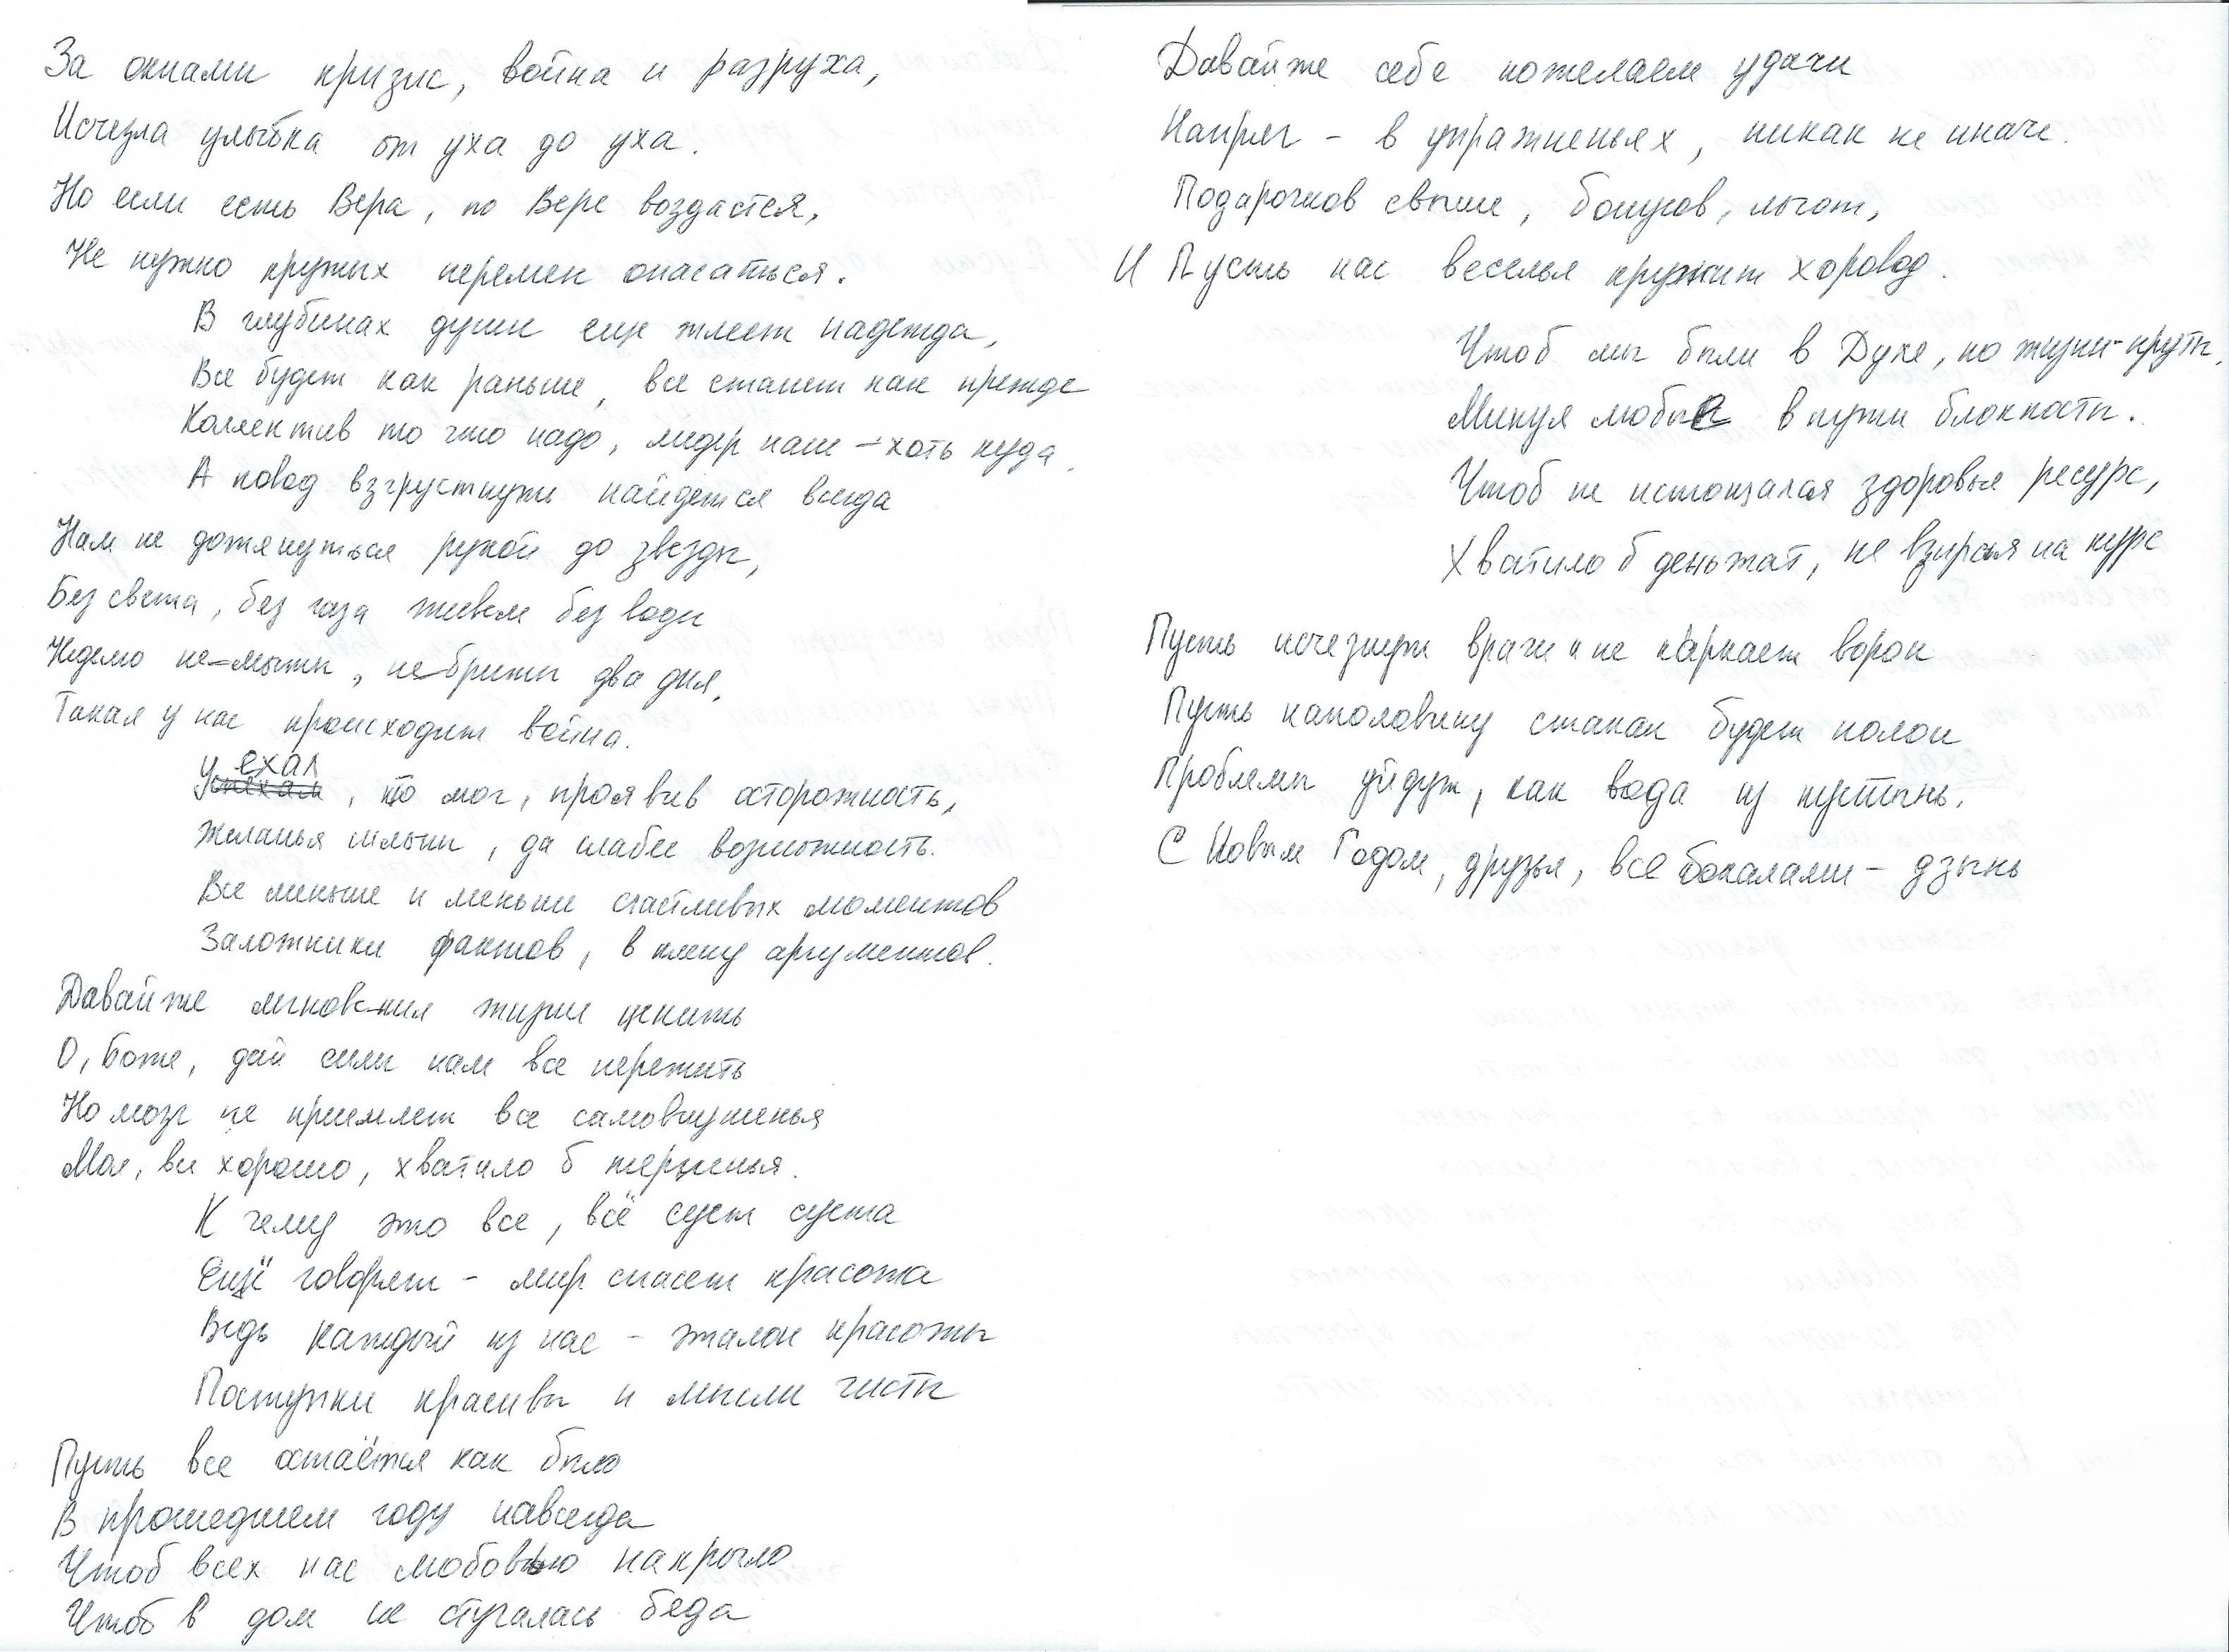 За окнами кризис, война и разруха,
Исчезла улыбка от уха до уха.
Но если есть Вера, по Вере воздастся,
Не нужно крутых перемен опасаться.
В глубинах души еще тлеет надежда,
Все будет как раньше, все станет как прежде
Коллектив то что надо, лидер наш - хоть куда.
А повод взгрустнуть найдется всегда
Нам не дотянуться рукой до звезды,
Без света, без газа живем без воды
Неделю не мыты, не бриты два дня,
Такая у нас происходит война.
уехал
, кто мог, проявив осторожность,
Желанья сильны, да слабее возможность.
Все меньше и меньше счастливых моментов
Заложники фактов, в плену аргументов.
Давайте мгновения жизни ценить
О, Боже, дай силы нам все пережить
Но мозг не приемлет все самовнушенья
Мол, все хорошо, хватило б терпенья.
К чему это все, всё сует сует​а
Ещё говорят - мир спасет красота
Ведь каждый из нас - эталон красоты
Поступки красивы и мысли чисты
Пусть все остаётся как было
В прошедшем году навсегда
Чтоб всех нас любовью накрыло
Чтоб в дом не стучалась беда
Давайте себе пожелаем удачи
Напряг - в упражненьях, никак не иначе.
Подарочков свыше, бонусов, льгот,
И Пусть нас веселья кружит хоровод.
Чтоб мы были в Духе, по жизни - круты,
Минуя любые в пути блокпосты.
Чтоб не истощался здоровья ресурс,
Хватило б деньжат, не взирая на курс
Пусть исчезнут враги и не каркает ворон
Пусть наполовину стакан будет полон
Проблемы уйдут, как вода из пустынь.
С Новым Годом, друзья, все бокалами - дзынь